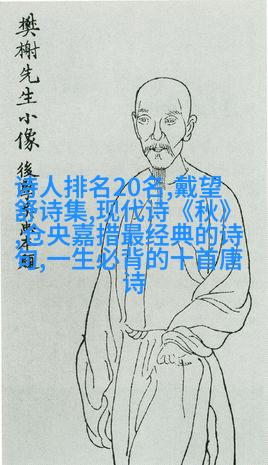 樊榭先生小像
後
诗人排名20名,戴望
舒诗集,现代诗《秋》
,仓央嘉措最经典的诗
句,一生必背的十首唐
诗